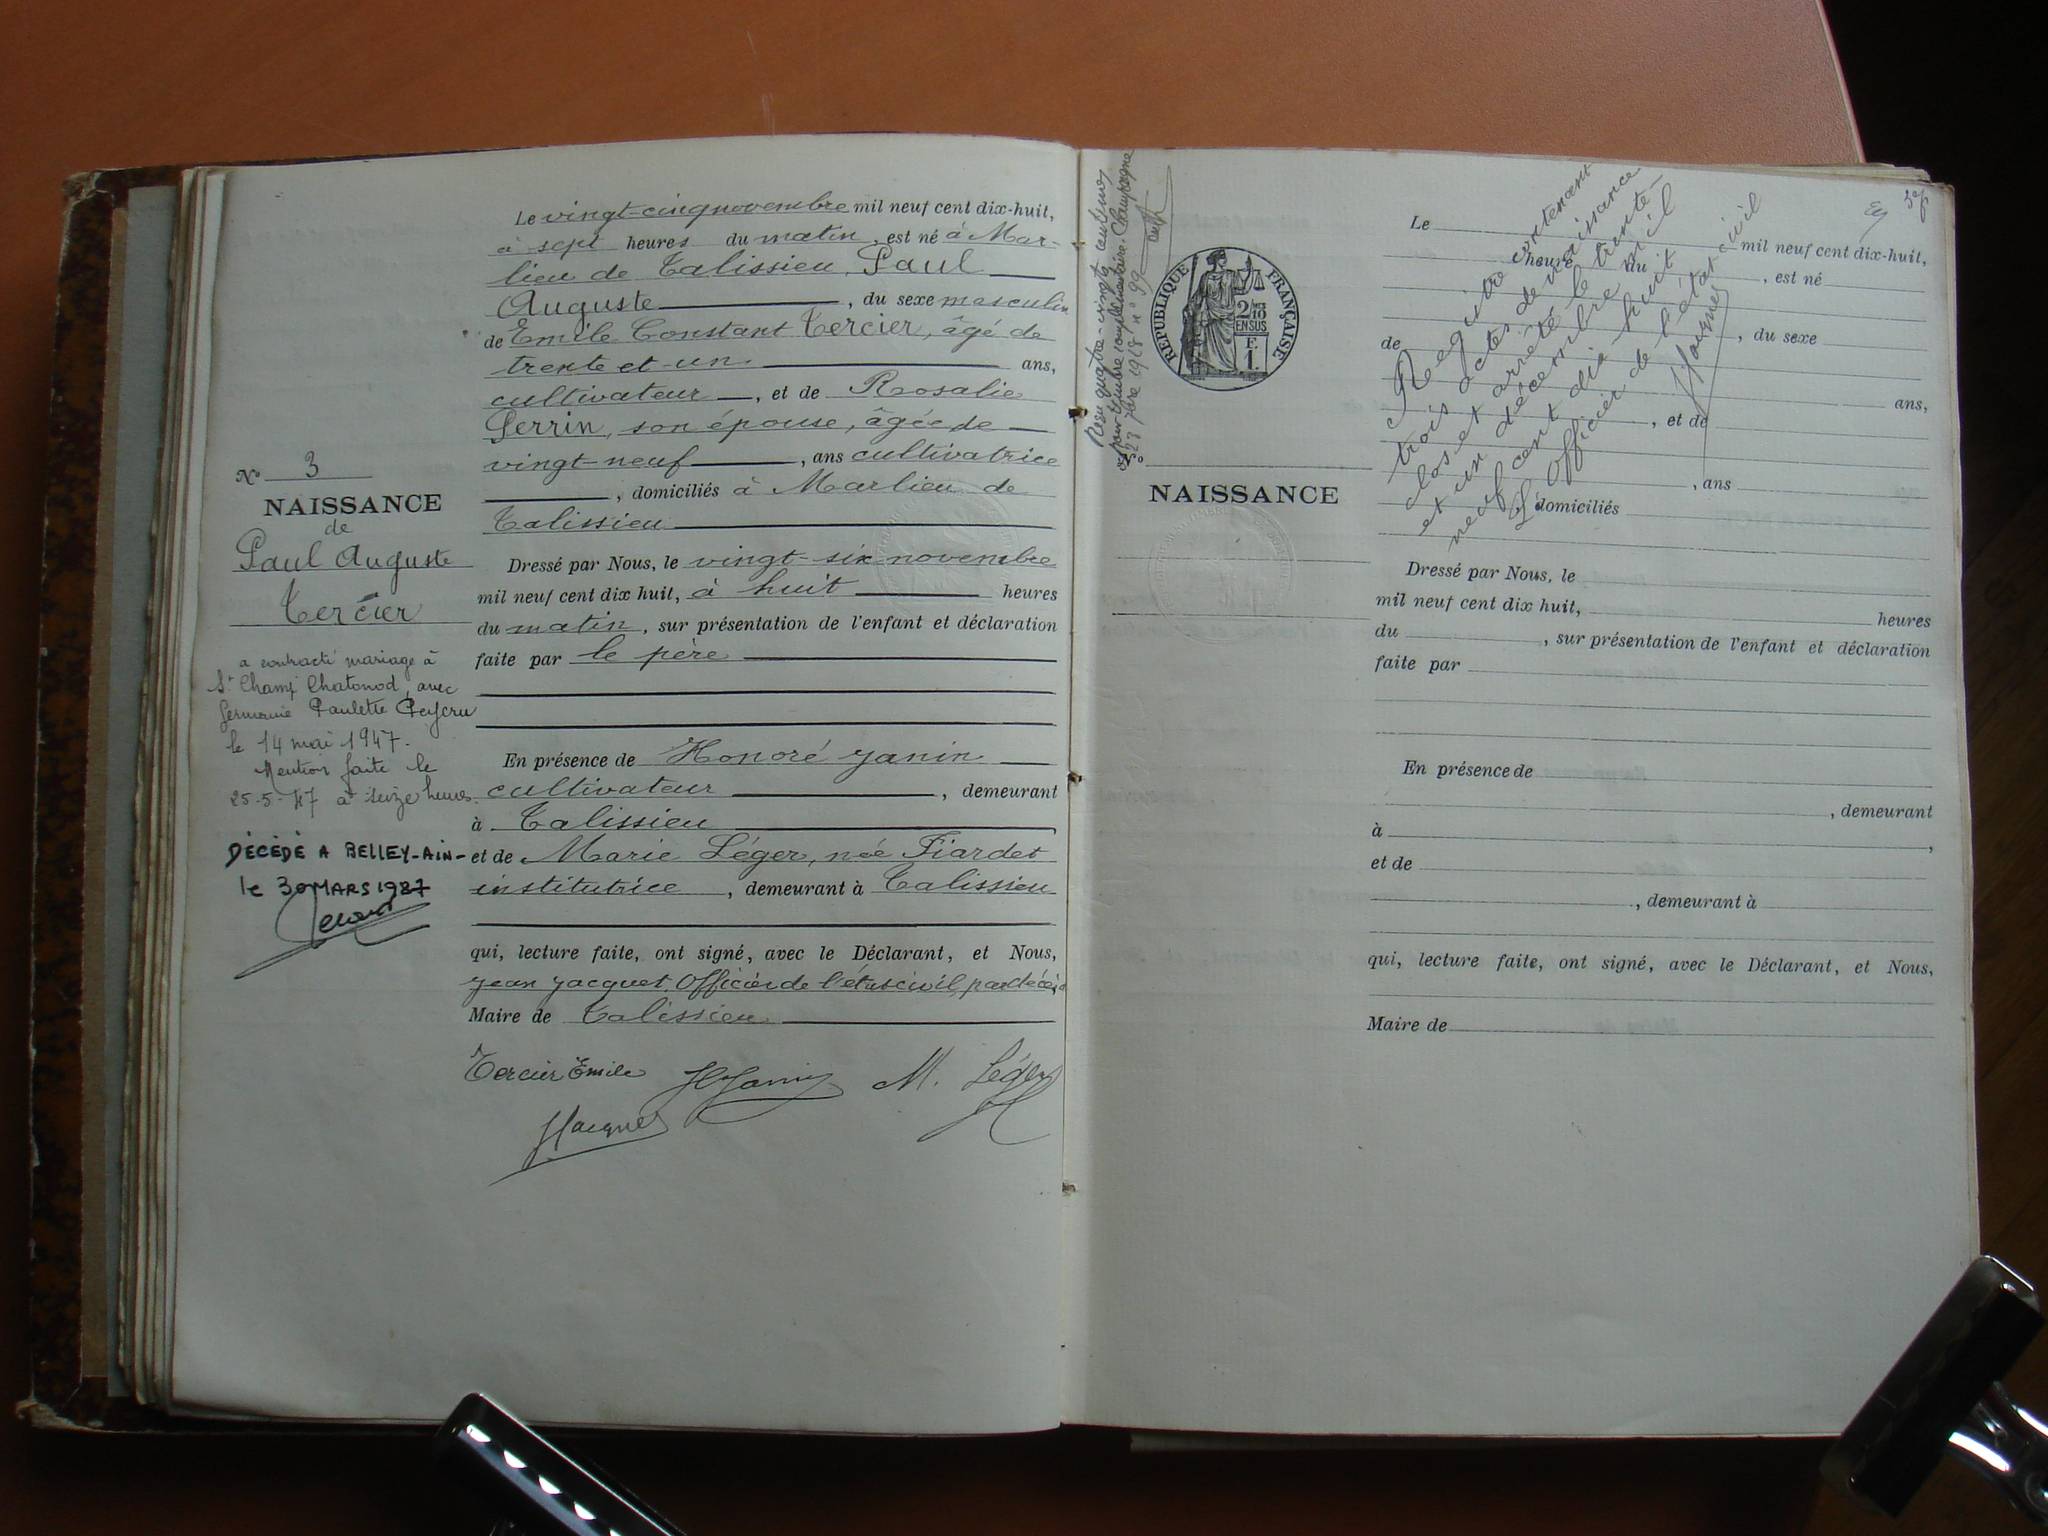 Le vingt-cinq novembre mil neuf cent dix-huit,
à sept heures du matin, est né à Mar-
lieu de Talissieu, Paul
Auguste, du sexe masculin
de Emile Constant Tercier, âgé de
trente et un ans,
cultivateur, et de Rosalie
Perrin, son épouse, âgée de
vingt-neuf, ans cultivatrice
, domiciliés à Marlieu de
Talissieu
Dressé par Nous, le vingt-six novembre
mil neuf cent dix huit, à huit heures
du matin, sur présentation de l'enfant et déclaration
faite par le père
En présence de Honoré Janin
cultivateur, demeurant
à Talissieu
et de Marie Léger, née Fiardet
institutrice, demeurant à Talissieu
qui, lecture faite, ont signé, avec le Déclarant, et Nous,
Jean Jacquet, Officier de l'état civil, par décès
Maire de Talissieu
Tercier Emile HJanin M. Léger
JJacquet
N° 3
NAISSANCE
de
Paul Auguste
Tercier
a contracté mariage à
St Champ Chatonod, avec
Germaine Paulette
le 14 mai 1947.
Mention faite le
25-5-47 à seize heures.
DÉCÉDÉ A BELLEY-AIN-
le 30 MARS 1987
Reçu quatre-vingts centimes
pour timbre complémentaire. Champagne
23 1918 n° 99
RÉPUBLIQUE FRANÇAISE
2/10
EN SUS
F.
1.
N°
NAISSANCE
Le mil neuf cent dix-huit,
heure du, est né
de, du sexe
ans,
, et de
, ans
, domiciliés
Registre contenant
trois actes de naissance
clos et arrêté le trente-
et un décembre mil
neuf cent dix huit
L'Officier de l'état civil
Dressé par Nous, le
mil neuf cent dix huit, heures
du, sur présentation de l'enfant et déclaration
faite par
En présence de
, demeurant
à,
et de
, demeurant à
qui, lecture faite, ont signé, avec le Déclarant, et Nous,
Maire de